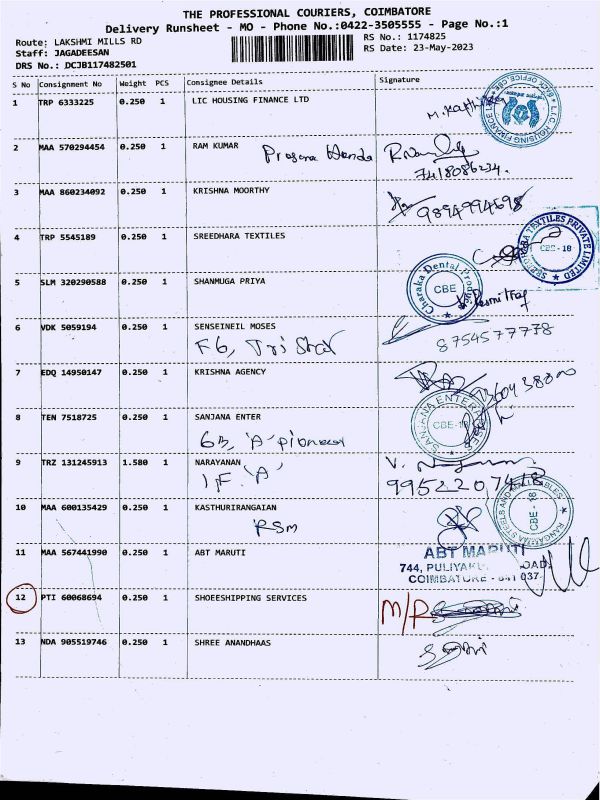 THE PROFESSIONAL COURIERS, COIMBATORE
Delivery Runsheet - MO - Phone No.:0422-3505555 - Page No.:1
Route: LAKSHMI MILLS RD
Staff: JAGADEESAN
DRS No.: DCJB117482501
RS No.: 1174825
RS Date: 23-May-2023
S No Consignment No Weight PCS Consignee Details Signature
1 TRP 6333225 0.250 1 LIC HOUSING FINANCE LTD
2 MAA 570294454 0.250 1 RAM KUMAR
7418086234.
3 MAA 860234092 0.250 1 KRISHNA MOORTHY
9894994698
4 TRP 5545189 0.250 1 SREEDHARA TEXTILES
CBE-18
5 SLM 320290588 0.250 1 SHANMUGA PRIYA
Charaka Dental Products
CBE
6 VDK 5059194 0.250 1 SENSEINEIL MOSES
F6, Tri Star
8754577778
7 EDQ 14950147 0.250 1 KRISHNA AGENCY
8 TEN 7518725 0.250 1 SANJANA ENTER
6B, 'A' pioneer
SANJANA ENTERPRISES
CBE-18
9 TRZ 131245913 1.580 1 NARAYANAN
1F 'A'
9952207478
10 MAA 600135429 0.250 1 KASTHURIRANGAIAN
RSM
CBE - 18
11 MAA 567441990 0.250 1 ABT MARUTI
ABT MARUTI
744, PULIYAKU ROAD,
COIMBATORE - 641 037
12 PTI 60068694 0.250 1 SHOEESHIPPING SERVICES
M/R
13 NDA 905519746 0.250 1 SHREE ANANDHAAS